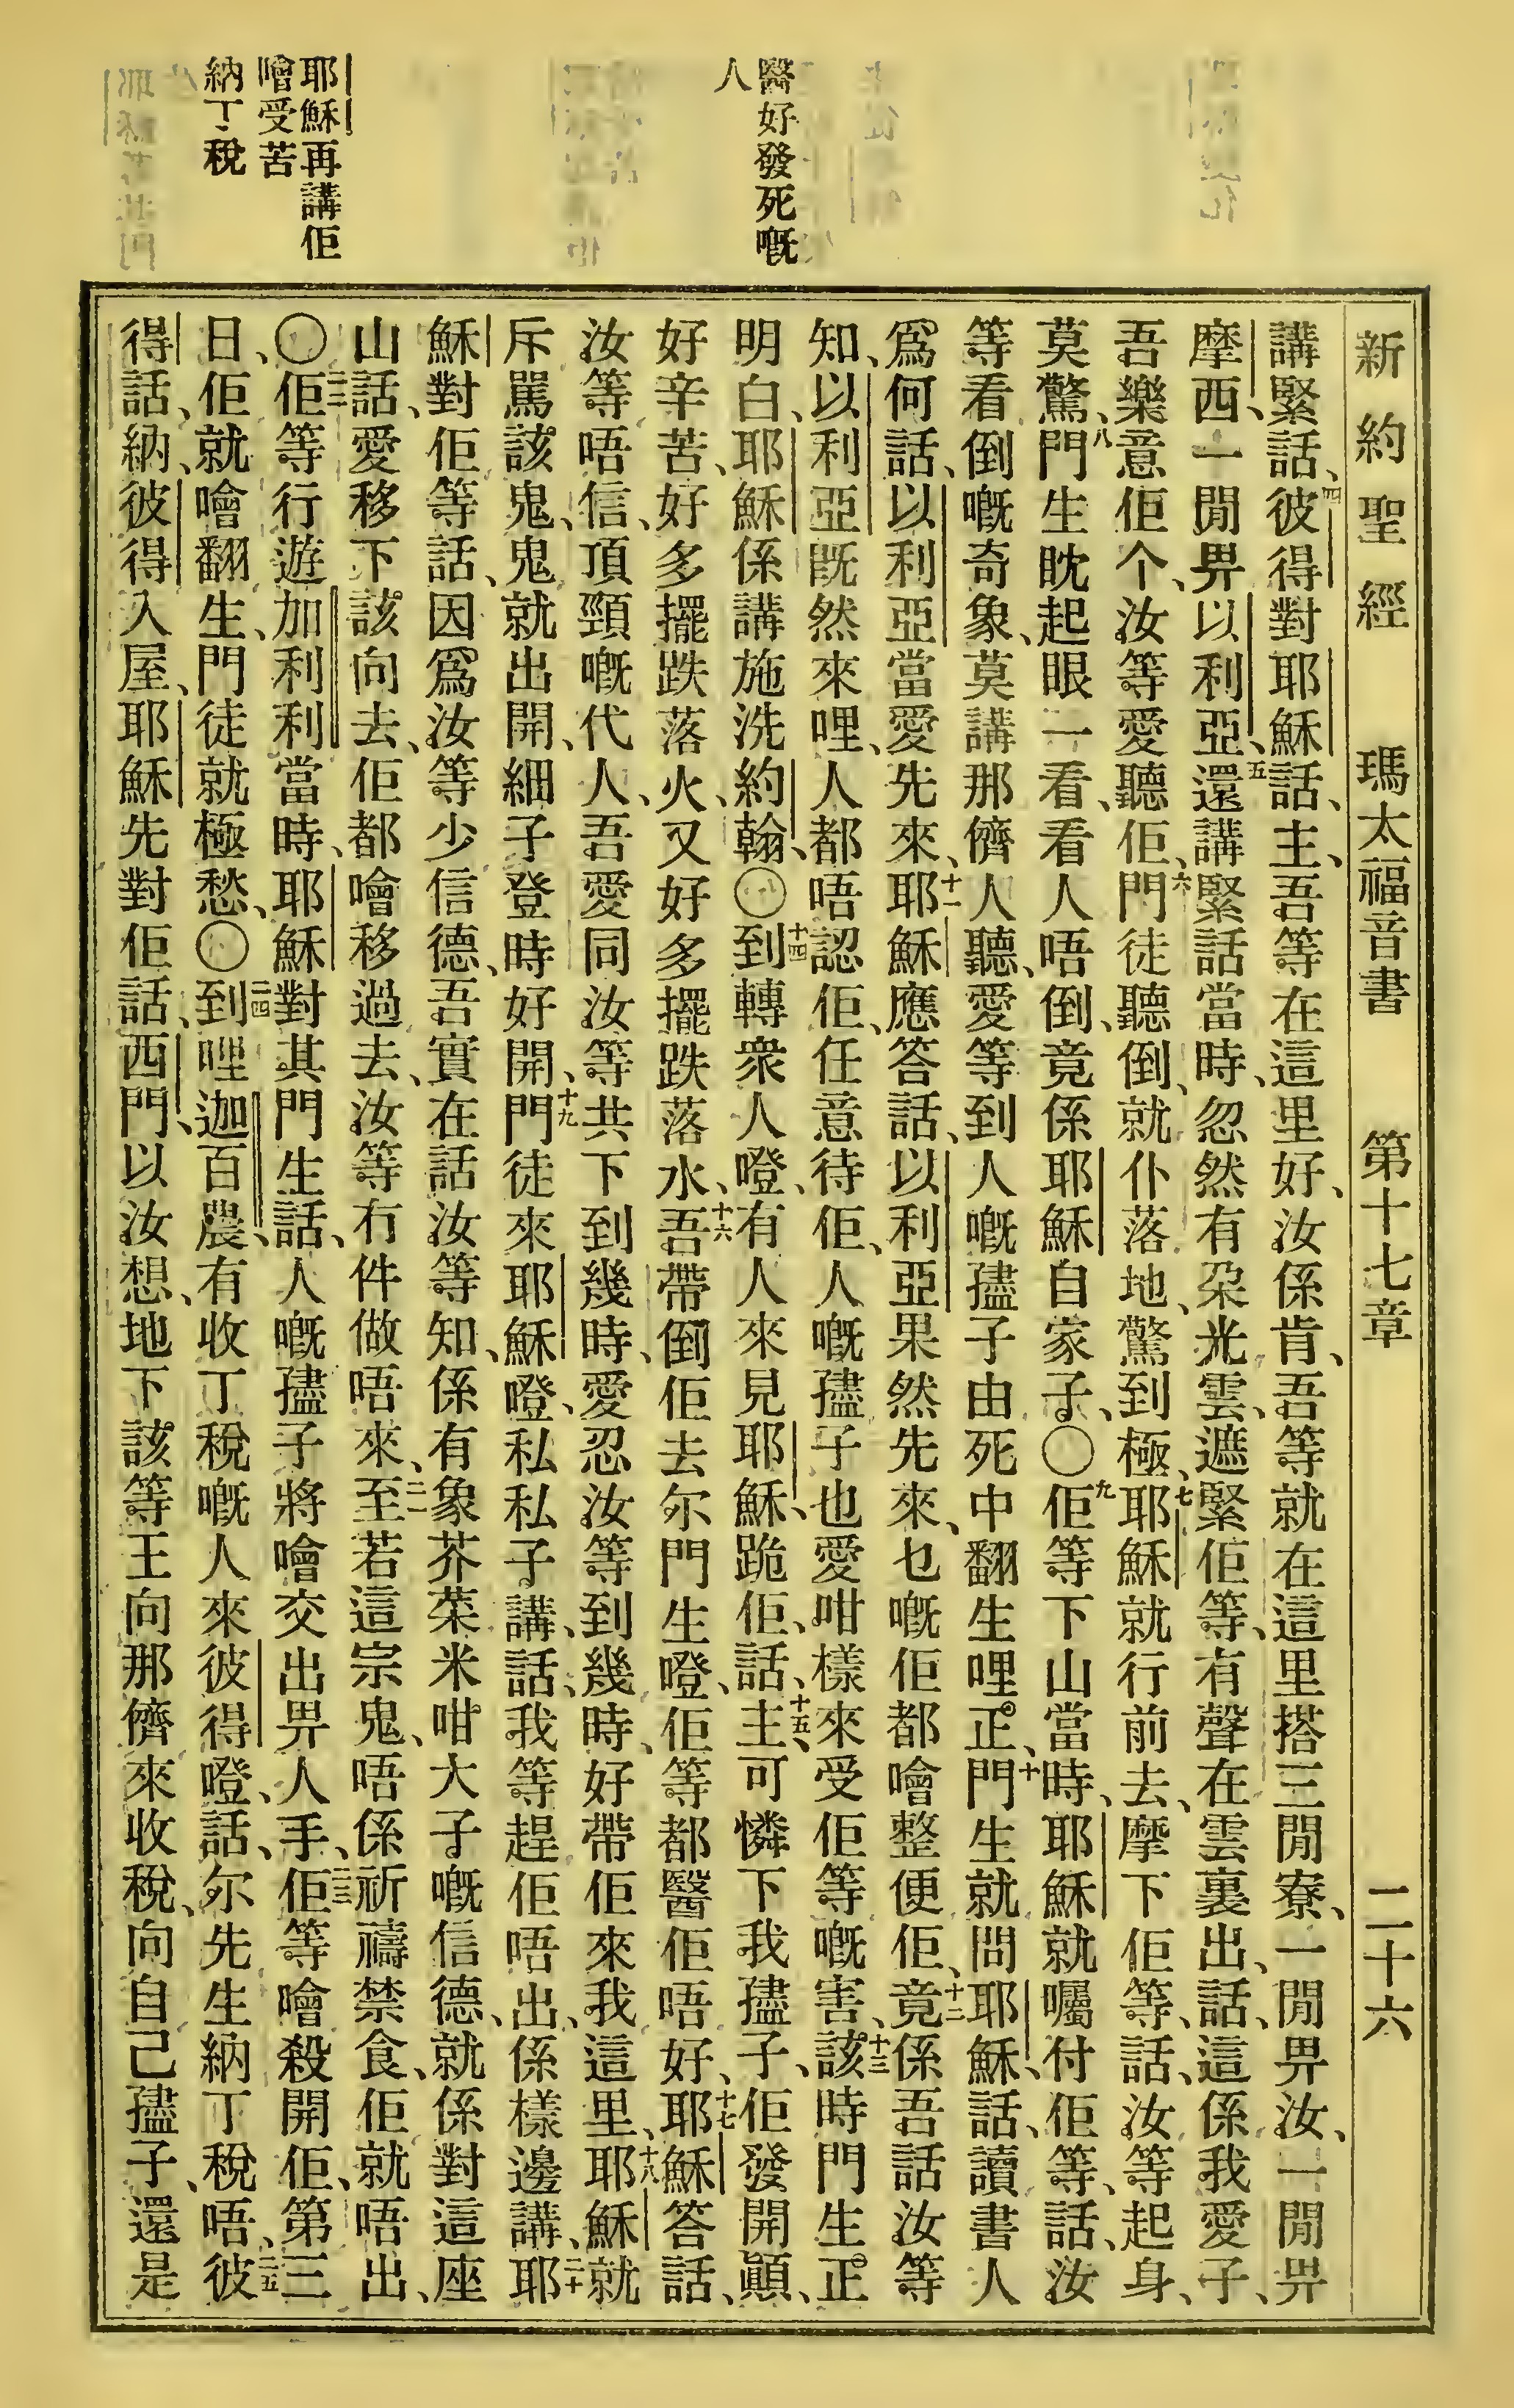 新約聖經　瑪太福音書　第十七章　二十六
醫好發死嘅
人
耶穌再講佢
噲受苦
納丁稅
講緊話、四彼得對耶穌話、主、吾等在這里好、汝係肯、吾等就在這里搭三閒寮、一閒畀汝、一閒畀
摩西、一閒畀以利亞、五還講緊話當時、忽然有朶光雲、遮緊佢等、有聲在雲裏出、話、這係我愛子、
吾樂意佢个、汝等愛聽佢、六門徒聽倒、就仆落地、驚到極、七耶穌就行前去、摩下佢等、話、汝等起身、
莫驚、八門生眈起眼一看、看人唔倒、竟係耶穌自家子、〇九佢等下山當時、耶穌就囑付佢等、話、汝
等看倒嘅奇象、莫講那儕人聽、愛等到人嘅孻子由死中翻生哩正、十門生就問耶穌、話、讀書人
爲何話、以利亞當愛先來、十一耶穌應答話、以利亞果然先來、乜嘅佢都噲整便佢、十二竟係吾話汝等
知、以利亞既然來哩、人都唔認佢、任意待佢、人嘅孻子也愛咁樣來受佢等嘅害、十三該時門生正
明白、耶穌係講施洗約翰、〇十四到轉衆人嶝、有人來見耶穌、跪佢、話、十五主、可憐下我孻子、佢發開顚、
好辛苦、好多擺跌落火、又好多擺跌落水、十六吾帶倒佢去尔門生嶝、佢等都醫佢唔好、十七耶穌答話、
汝等唔信、頂頸嘅代人、吾愛同汝等共下到幾時、愛忍汝等到幾時、好帶佢來我這里、十八耶穌就
斥罵該鬼、鬼就出開、細子登時好開、十九門徒來耶穌嶝、私私子講、話、我等趕佢唔出、係樣邊講、二十耶
穌對佢等話、因爲汝等少信德、吾實在話汝等知、係有象芥菜米咁大子嘅信德、就係對這座
山話、愛移下該向去、佢都噲移過去、汝等冇件做唔來、二一至若這宗鬼、唔係祈禱禁食、佢就唔出、
〇二二佢等行遊加利利當時、耶穌對其門生話、人嘅孻子將噲交出畀人手、二三佢等噲殺開佢、第三
日、佢就噲翻生、門徒就極愁、〇二四到哩迦百農、有收丁稅嘅人來彼得嶝、話、尔先生納丁稅唔、二五彼
得話、納、彼得入屋、耶穌先對佢話、西門、以汝想、地下該等王向那儕來收稅、向自己孻子、還是